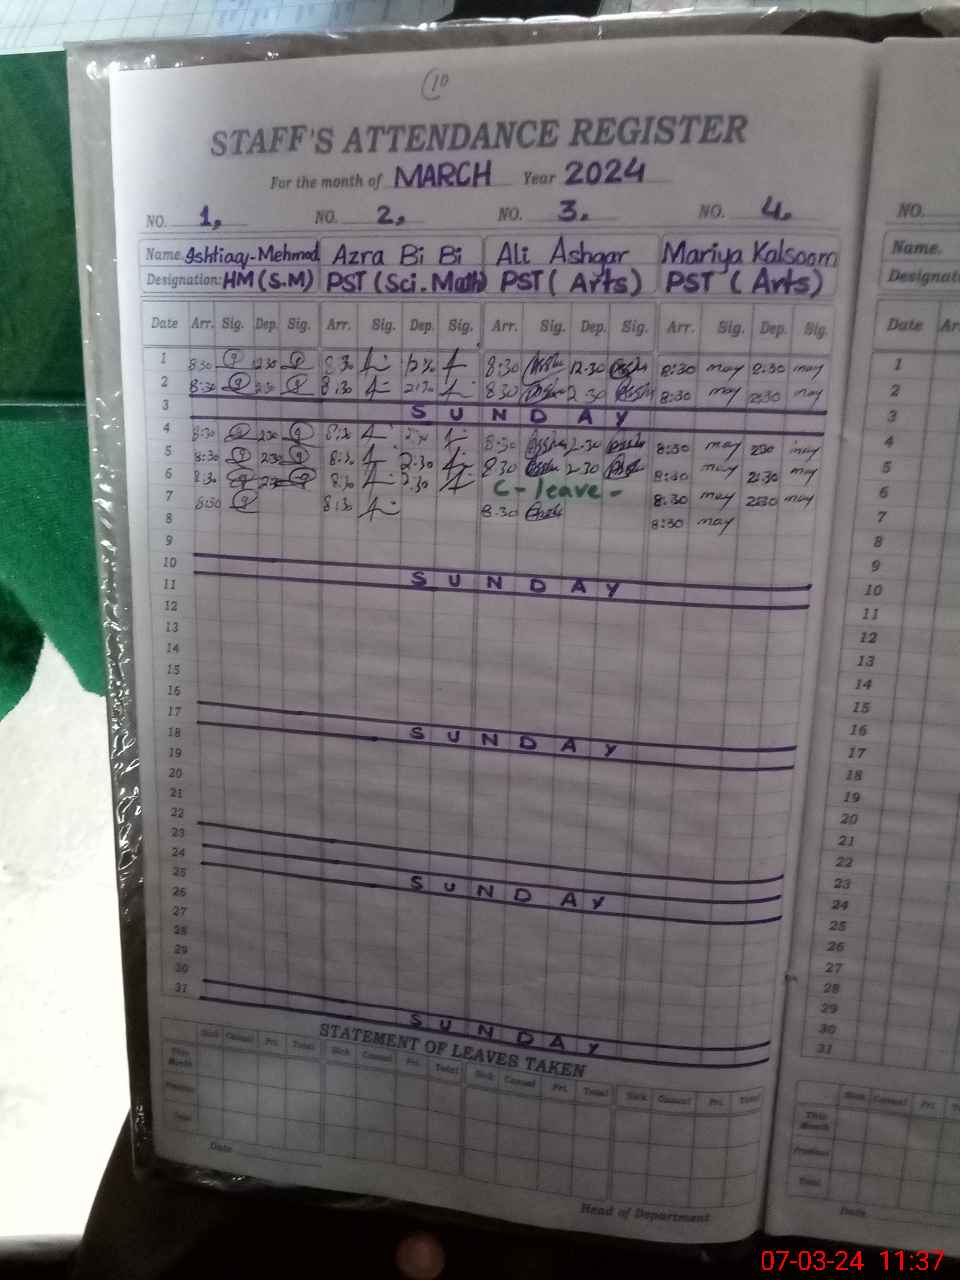 10
STAFF'S ATTENDANCE REGISTER
For the month of MARCH Year 2024
NO. 1, NO. 2, NO. 3. NO. 4, NO.
Name. Ishtiaq-Mehmod Azra Bi Bi Ali Ashgar Mariya Kalsoom Name.
Designation: HM (S.M) PST (Sci. Math) PST ( Arts) PST ( Arts) Designati
Date Arr. Sig. Dep. Sig. Arr. Sig. Dep. Sig. Arr. Sig. Dep. Sig. Arr. Sig. Dep. Sig. Date Ar
1 8:30 12:30 8:30 8:30 12.30 8:30 may 2:30 may 1
2 8:30 8:30 8:30 2.30 8:30 may 2:30 may 2
3 SUNDAY 3
4 8:30 2:30 8:30 2:30 8:30 2.30 8:30 may 2:30 may 4
5 8:30 2:30 8:30 2:30 8:30 2.30 8:30 may 2:30 may 5
6 8:30 2:30 8:30 2:30 C-leave- 8:30 may 2:30 may 6
7 8:30 8:30 8:30 8:30 may 7
8 8
9 9
10 SUNDAY 10
11 11
12 12
13 13
14 14
15 15
16 16
17 SUNDAY 17
18 18
19 19
20 20
21 21
22 22
23 23
24 SUNDAY 24
25 25
26 26
27 27
28 28
29 29
30 30
31 SUNDAY 31
STATEMENT OF LEAVES TAKEN
Sick Casual Pri. Total Sick Casual Pri. Total Sick Casual Pri. Total Sick Casual Pri. Total Sick Casual Pri
This Month This Month
Previous Previous
Total Total
Date Date
Head of Department
07-03-24 11:37